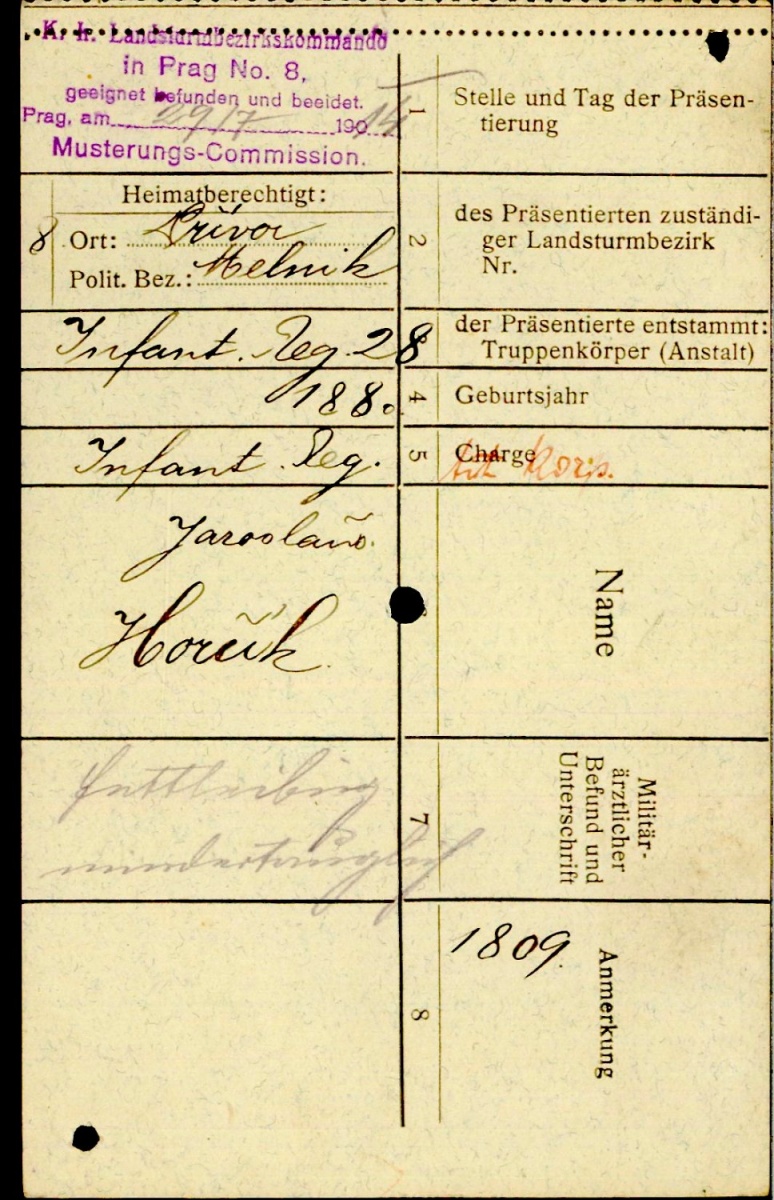 K. k. Landsturmbezirkskommando
in Prag No. 8,
geeignet befunden und beeidet.
Prag, am 29/7 1914
Musterungs-Commission.
1
Stelle und Tag der Präsen-
tierung
Heimatberechtigt:
8 Ort: Přívor
Polit. Bez.: Melnik
2
des Präsentierten zuständi-
ger Landsturmbezirk
Nr.
Infant. Reg. 28
der Präsentierte entstammt:
Truppenkörper (Anstalt)
1880
4
Geburtsjahr
Infant. Reg.
5
Charge
Korps.
Jaroslav
Horčík
Name
fettleibig
mindertauglich
7
Militär-
ärztlicher
Befund und
Unterschrift
8
1809.
Anmerkung